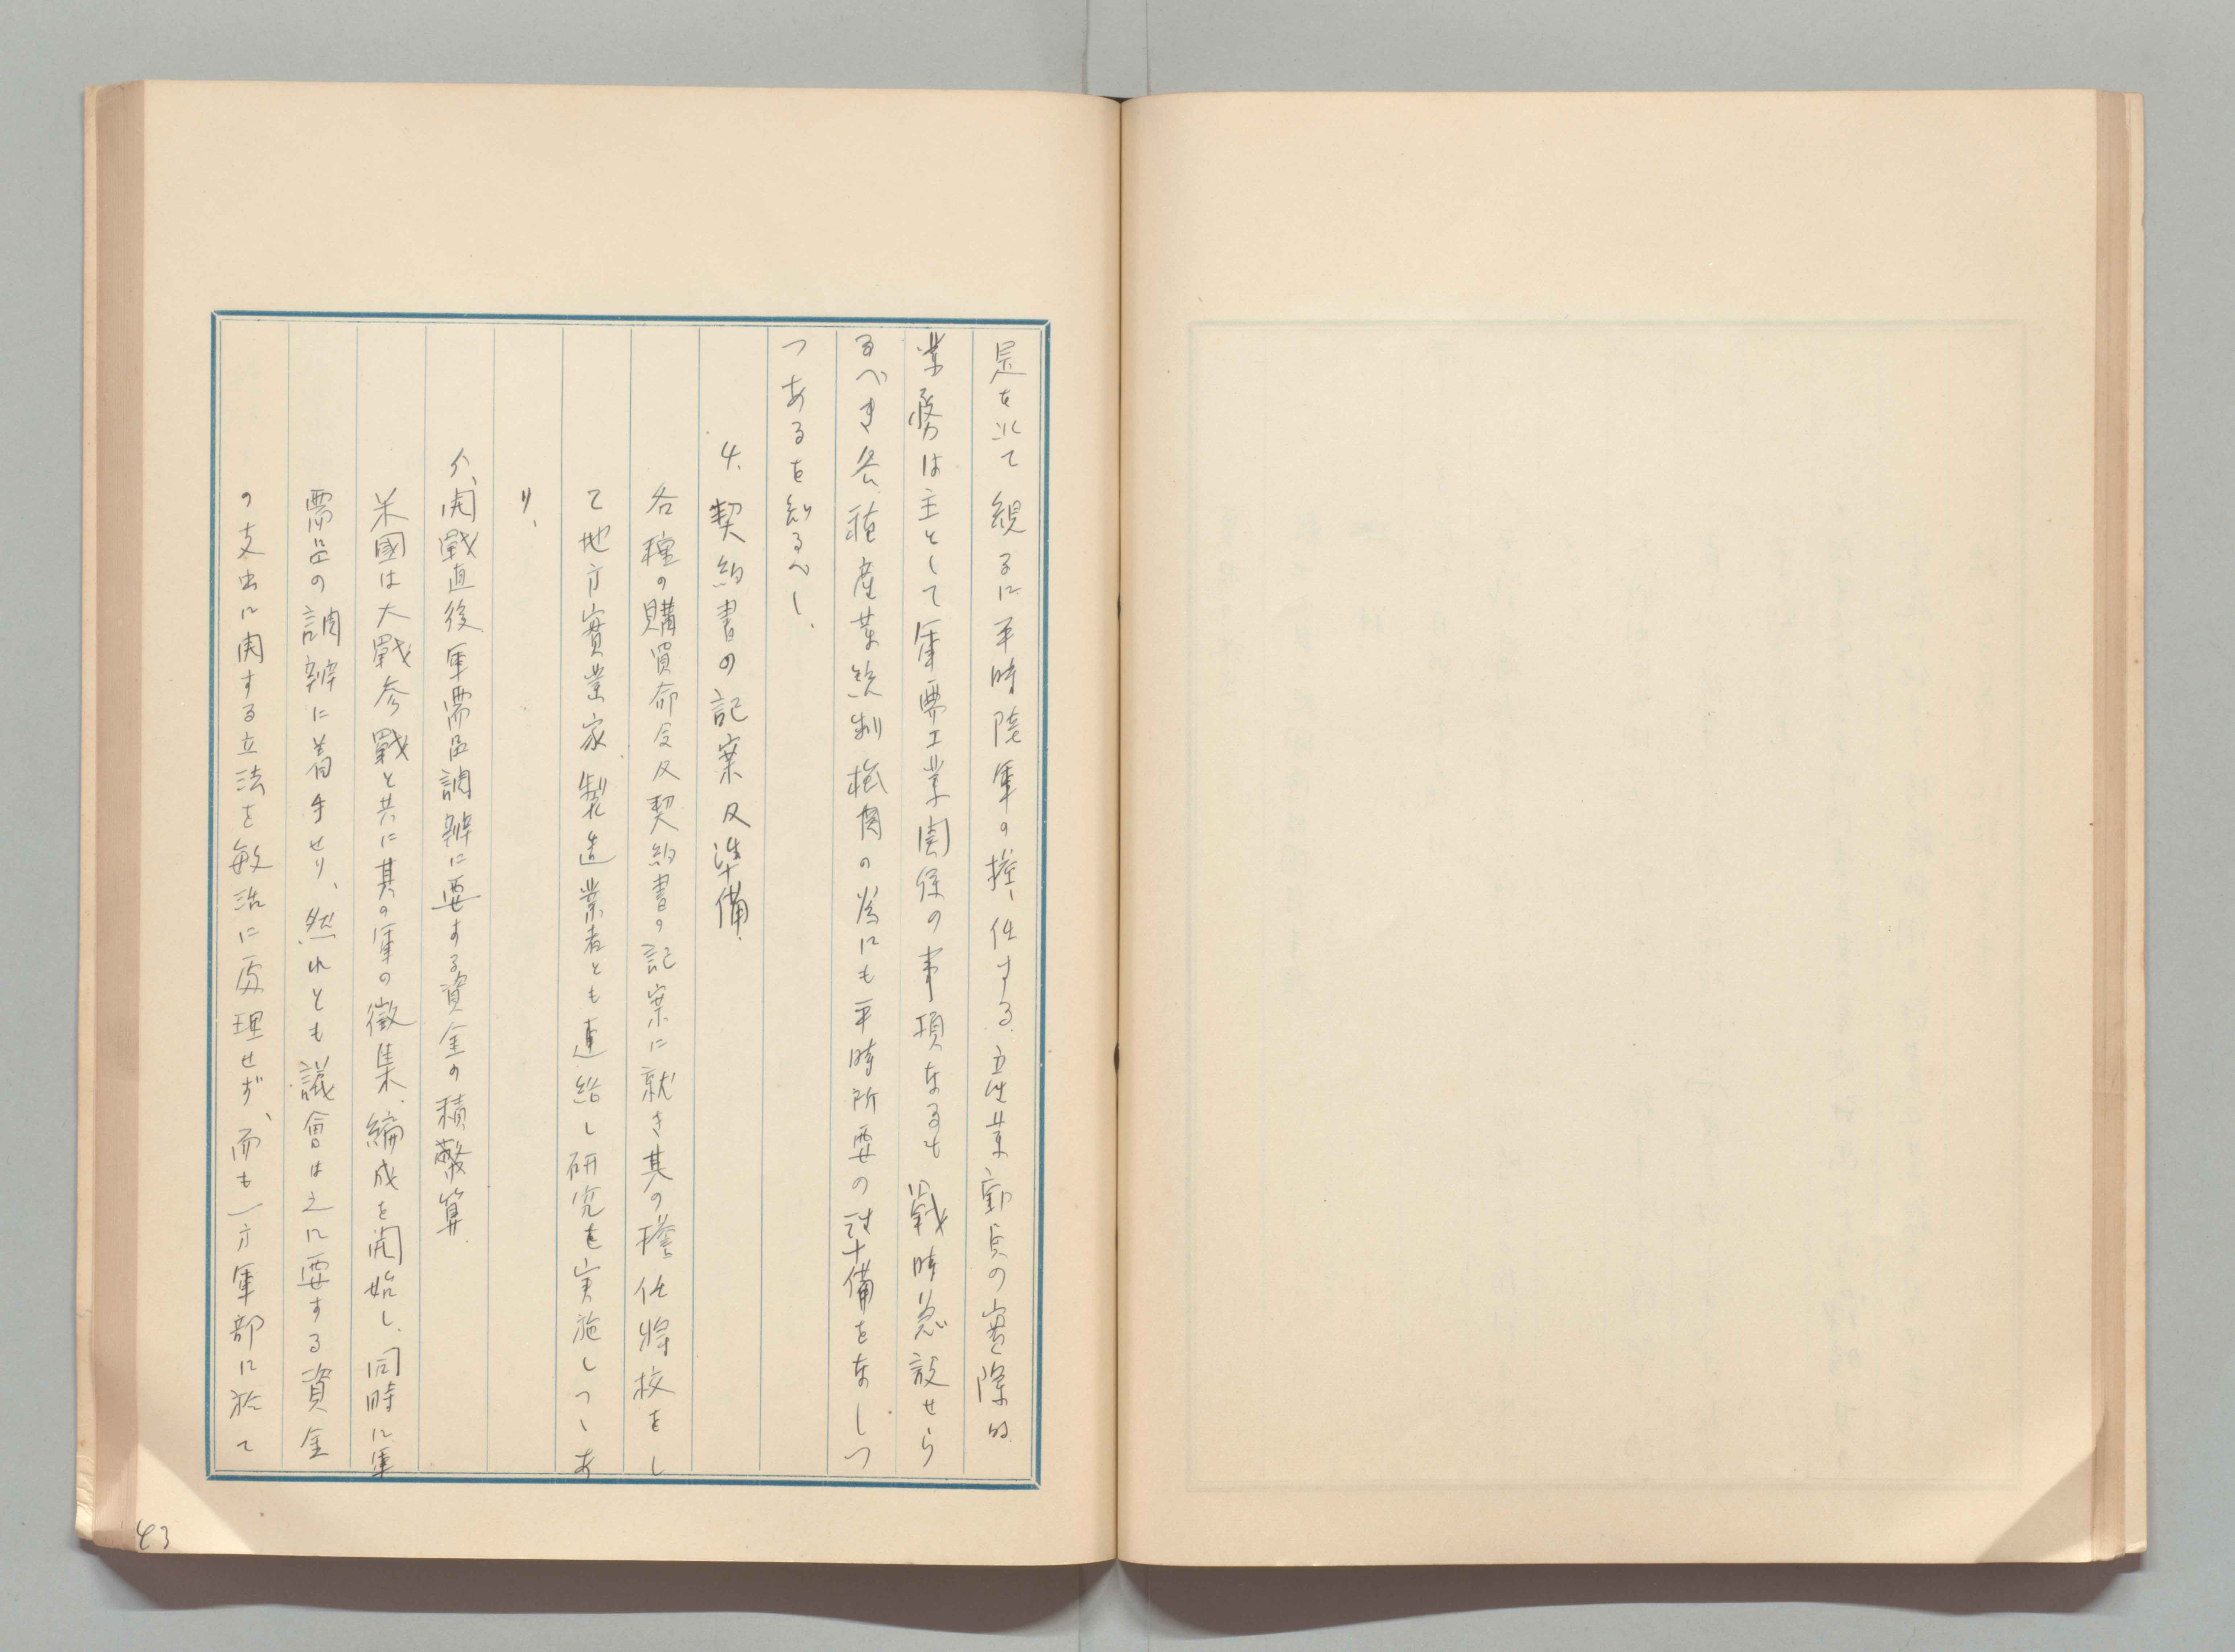 是を以て観るに平時陸軍の擔任する産業動員の實際的
業務は主として軍需工業関係の事項なるも戦時急設せら
るべき各種産業統制機関の為にも平時所要の準備をなしつ
つあるを知るべし、
4、契約書の記案及準備
各種の購買命令及契約書の記案に就き其の擔任将校をし
て地方實業家製造業者とも連絡し研究を実施しつゝあ
り、
開戰直後軍需品調辨に要する資金の積算
米國は大戰参戰と共に其の軍の徴集、編成を開始し、同時に軍
需品の調辨に着手せり、然れとも議會は之に要する資金
の支出に関する立法を敏活に處理せず、而も一方軍部に於て
43